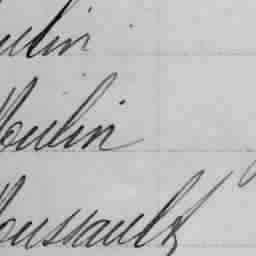 oulin
Moulin
Moussault